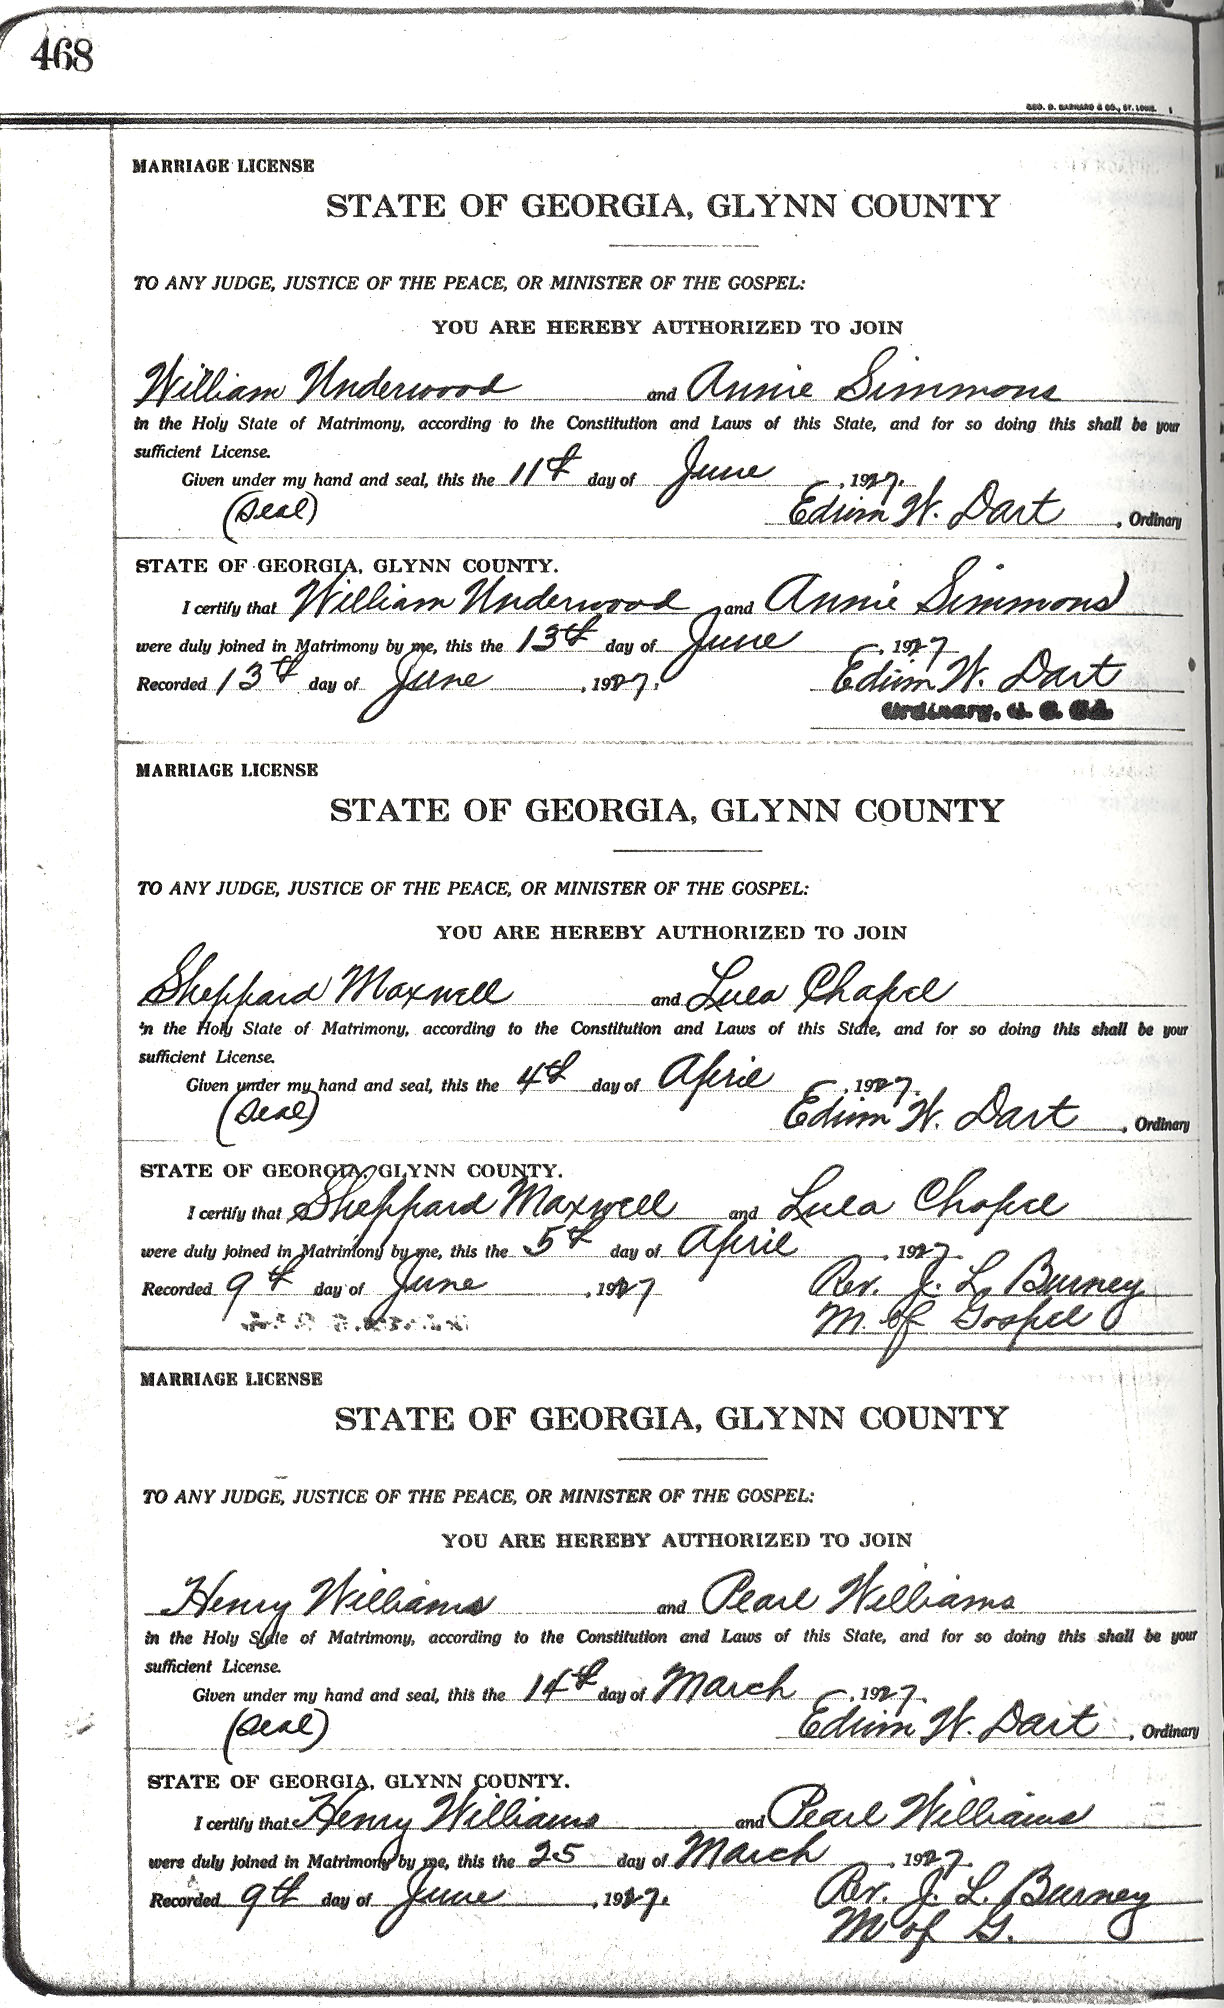 468
GEO. D. BARNARD & CO., ST. LOUIS.
MARRIAGE LICENSE
STATE OF GEORGIA, GLYNN COUNTY
TO ANY JUDGE, JUSTICE OF THE PEACE, OR MINISTER OF THE GOSPEL:
YOU ARE HEREBY AUTHORIZED TO JOIN
William Underwood and Annie Simmons
in the Holy State of Matrimony, according to the Constitution and Laws of this State, and for so doing this shall be your
sufficient License.
Given under my hand and seal, this the 11th day of June, 1927.
(Seal) Edwin W. Dart, Ordinary
STATE OF GEORGIA, GLYNN COUNTY.
I certify that William Underwood and Annie Simmons
were duly joined in Matrimony by me, this the 13th day of June, 1927
Recorded 13th day of June, 1927. Edwin W. Dart
Ordinary, G. C. Ga.
MARRIAGE LICENSE
STATE OF GEORGIA, GLYNN COUNTY
TO ANY JUDGE, JUSTICE OF THE PEACE, OR MINISTER OF THE GOSPEL:
YOU ARE HEREBY AUTHORIZED TO JOIN
Sheppard Maxwell and Lula Chapel
in the Holy State of Matrimony, according to the Constitution and Laws of this State, and for so doing this shall be your
sufficient License.
Given under my hand and seal, this the 4th day of April, 1927.
(Seal) Edwin W. Dart, Ordinary
STATE OF GEORGIA, GLYNN COUNTY.
I certify that Sheppard Maxwell and Lula Chapel
were duly joined in Matrimony by me, this the 5th day of April, 1927.
Recorded 9th day of June, 1927 Rev. J. L. Burney
M. of Gospel
MARRIAGE LICENSE
STATE OF GEORGIA, GLYNN COUNTY
TO ANY JUDGE, JUSTICE OF THE PEACE, OR MINISTER OF THE GOSPEL:
YOU ARE HEREBY AUTHORIZED TO JOIN
Henry Williams and Pearl Williams
in the Holy State of Matrimony, according to the Constitution and Laws of this State, and for so doing this shall be your
sufficient License.
Given under my hand and seal, this the 14th day of March, 1927.
(Seal) Edwin W. Dart, Ordinary
STATE OF GEORGIA, GLYNN COUNTY.
I certify that Henry Williams and Pearl Williams
were duly joined in Matrimony by me, this the 25 day of March, 1927.
Recorded 9th day of June, 1927. Rev. J. L. Burney
M of G.